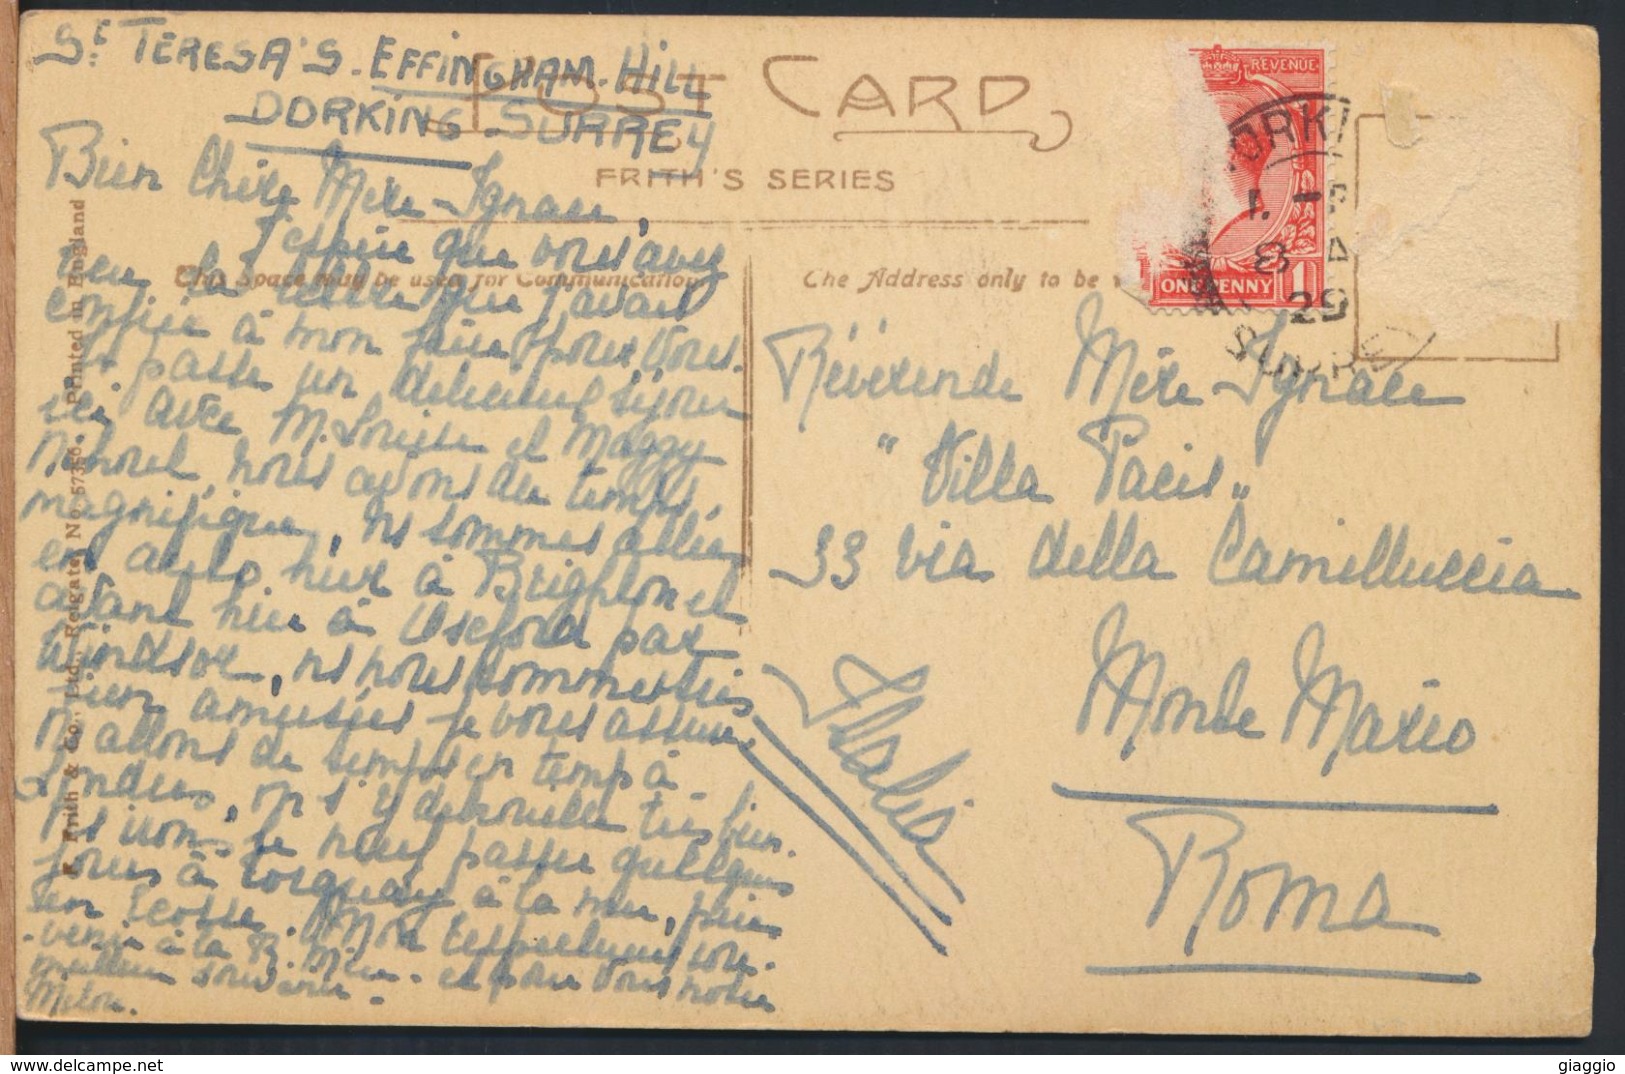 St TERESA'S. EFFINGHAM. HILL
DORKING SURREY
POST CARD
FRITH'S SERIES
This Space may be used for Communication
The Address only to be
REVENUE
ONE PENNY 1
ORKI
8 A
29
SURREY
Bien Chère Mère Ignace,
J'espère que vous avez
reçu la lettre que j'avais
confiée à mon frère pour vous.
Je passe un délicieux séjour
ici avec M. Louise et Maggy
Nahoul, nous avons du temps
magnifique, ns sommes allées
en auto hier à Brighton et
avant hier à Oxford par
Windsor, ns nous sommes très
bien amusées je vous assure.
Ns allons de temps en temps à
Londres, on s'y débrouille très bien.
Ns irons le neuf passer quelques
jours à Torquay à la mer, puis
en Ecosse. Mon respectueux sou-
venir à la R. Mère. et pour vous notre
meilleur souvenir.
F. Frith & Co., Ltd., Reigate. No. 57356. Printed in England
Révérende Mère Ignace
"Villa Pacis"
33 via della Camilluccia
Monte Mario
Roma
Italie
giaggio